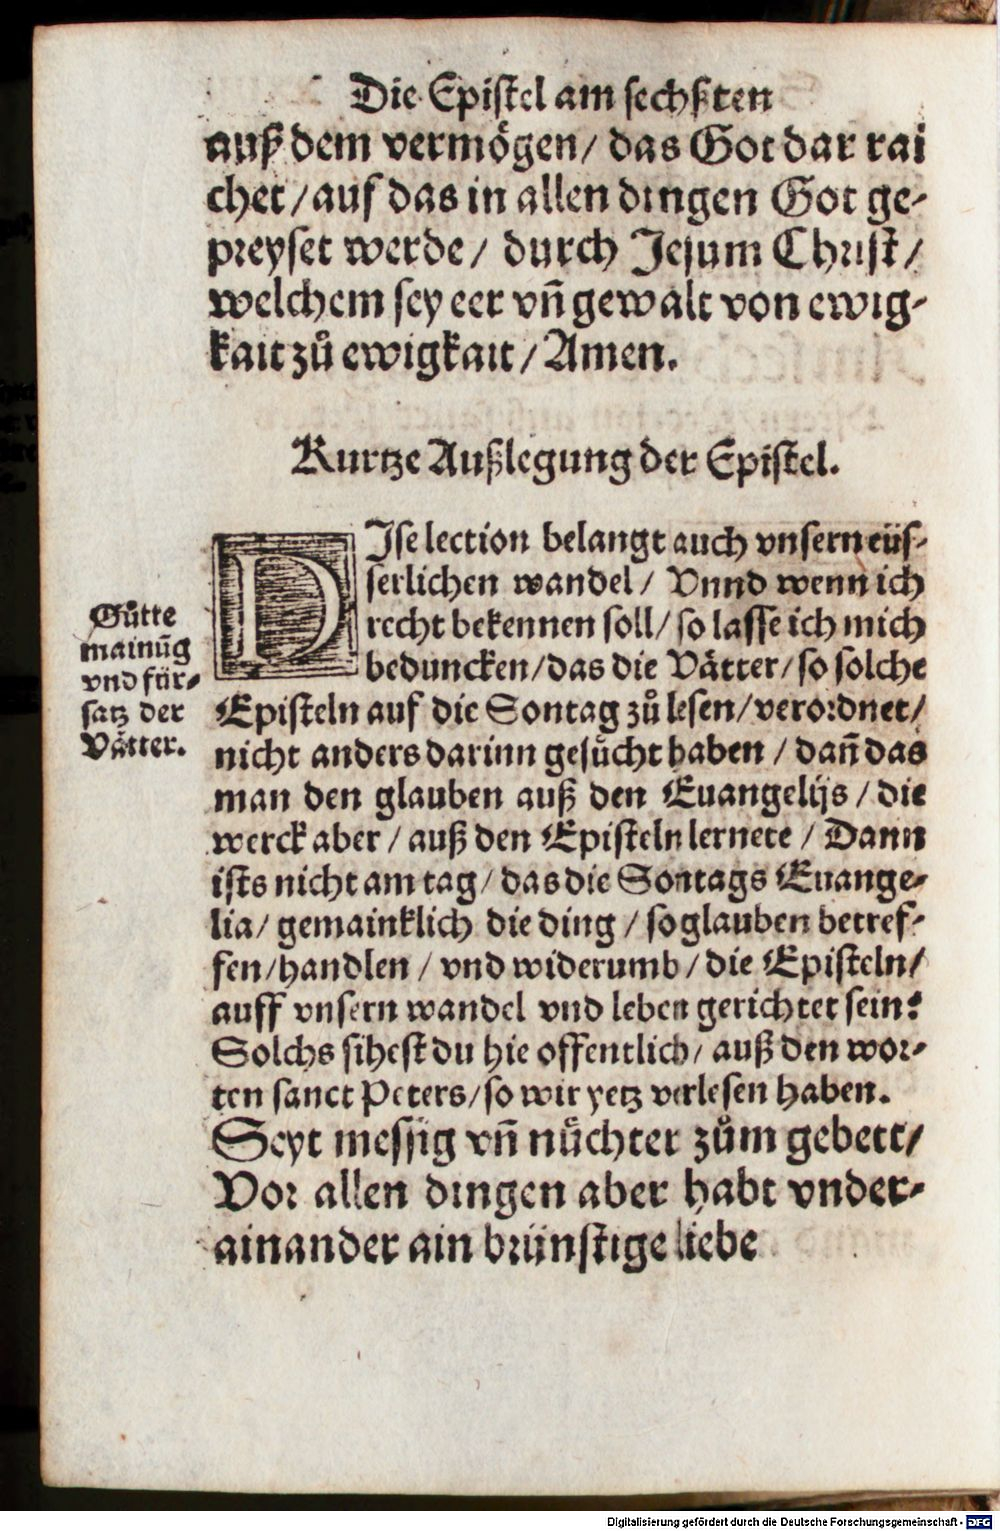 Die Epistel am sechsten
auß dem vermögen/ das Got dar rai
chet/auf das in allen dingen Got ge-
preyset werde/ durch Jesum Christ/
welchem sey eer vñ gewalt von ewig-
kait zů ewigkait/Amen.
Kurtze Außlegung der Epistel.
DIse lection belangt auch vnsern eüs-
serlichen wandel/ Vnnd wenn ich
recht bekennen soll/ so lasse ich mich
beduncken/das die Vätter/so solche
Episteln auf die Sontag zů lesen/verordnet/
nicht anders darinn gesůcht haben/ dañ das
man den glauben auß den Euangelijs/ die
werck aber/ auß den Episteln lernete/ Dann
ists nicht am tag/ das die Sontags Euange-
lia/ gemainklich die ding/ so glauben betref-
fen/handlen/ vnd widerumb/ die Episteln/
auff vnsern wandel vnd leben gerichtet sein?
Solchs sihest du hie offentlich/ auß den wor-
ten sanct Peters/so wir yetz verlesen haben.
Seyt messig vñ nůchter zům gebett/
Vor allen dingen aber habt vnder-
ainander ain brünstige liebe
Gůtte
mainũg
vnd für-
satz der
Vätter.
Digitalisierung gefördert durch die Deutsche Forschungsgemeinschaft - DFG